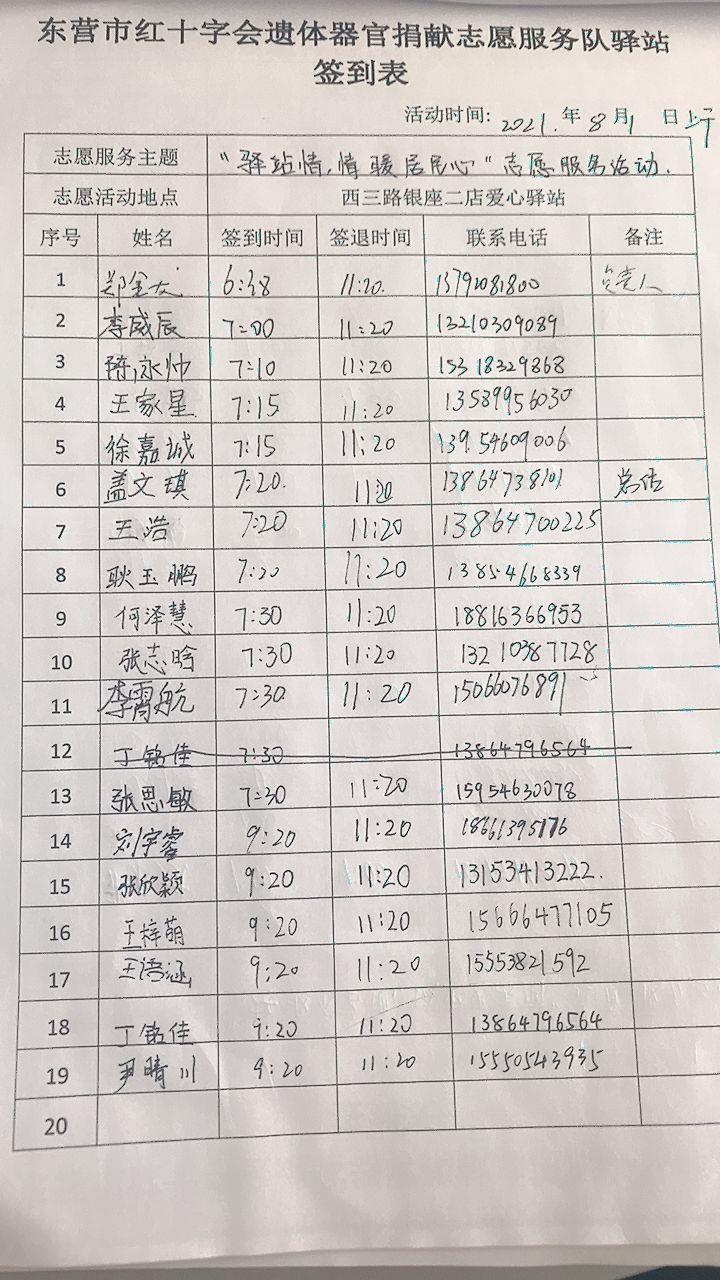 东营市红十字会遗体器官捐献志愿服务队驿站
签到表
活动时间: 2021. 年 8 月1 日上午
志愿服务主题 "驿站情,情暖居民心"志愿服务活动.
志愿活动地点 西三路银座二店爱心驿站
序号 姓名 签到时间 签退时间 联系电话 备注
1 郑金友 6:38 11:20. 负责人
2 李威辰 7:00 11:20 13210309089
3 陈永帅 7:10 11:20 15318329868
4 王家星 7:15 11:20 13589956030
5 徐嘉诚 7:15 11:20 13954609006
6 盖文琪 7:20. 11:20 13864738101 总结
7 王浩 7:20 11:20 13864700225
8 耿玉鹏 7:20 11:20 13854668339
9 何泽慧 7:30 11:20 18816366953
10 张志晗 7:30 11:20 13210387728
11 李霄航 7:30. 11:20 15066076891
12 丁铭佳 7:30 13864796564
13 张思敏 7:30 11:20 15954630078
14 刘宇睿 9:20 11:20 18661395176
15 张欣颖 9:20 11:20 13153413222.
16 王梓萌 9:20 11:20 15666477105
17 王语涵 9:20 11:20 15553821592
18 丁铭佳 9:20 11:20 13864796564
19 尹晴川 9:20 11:20 15550543935
20